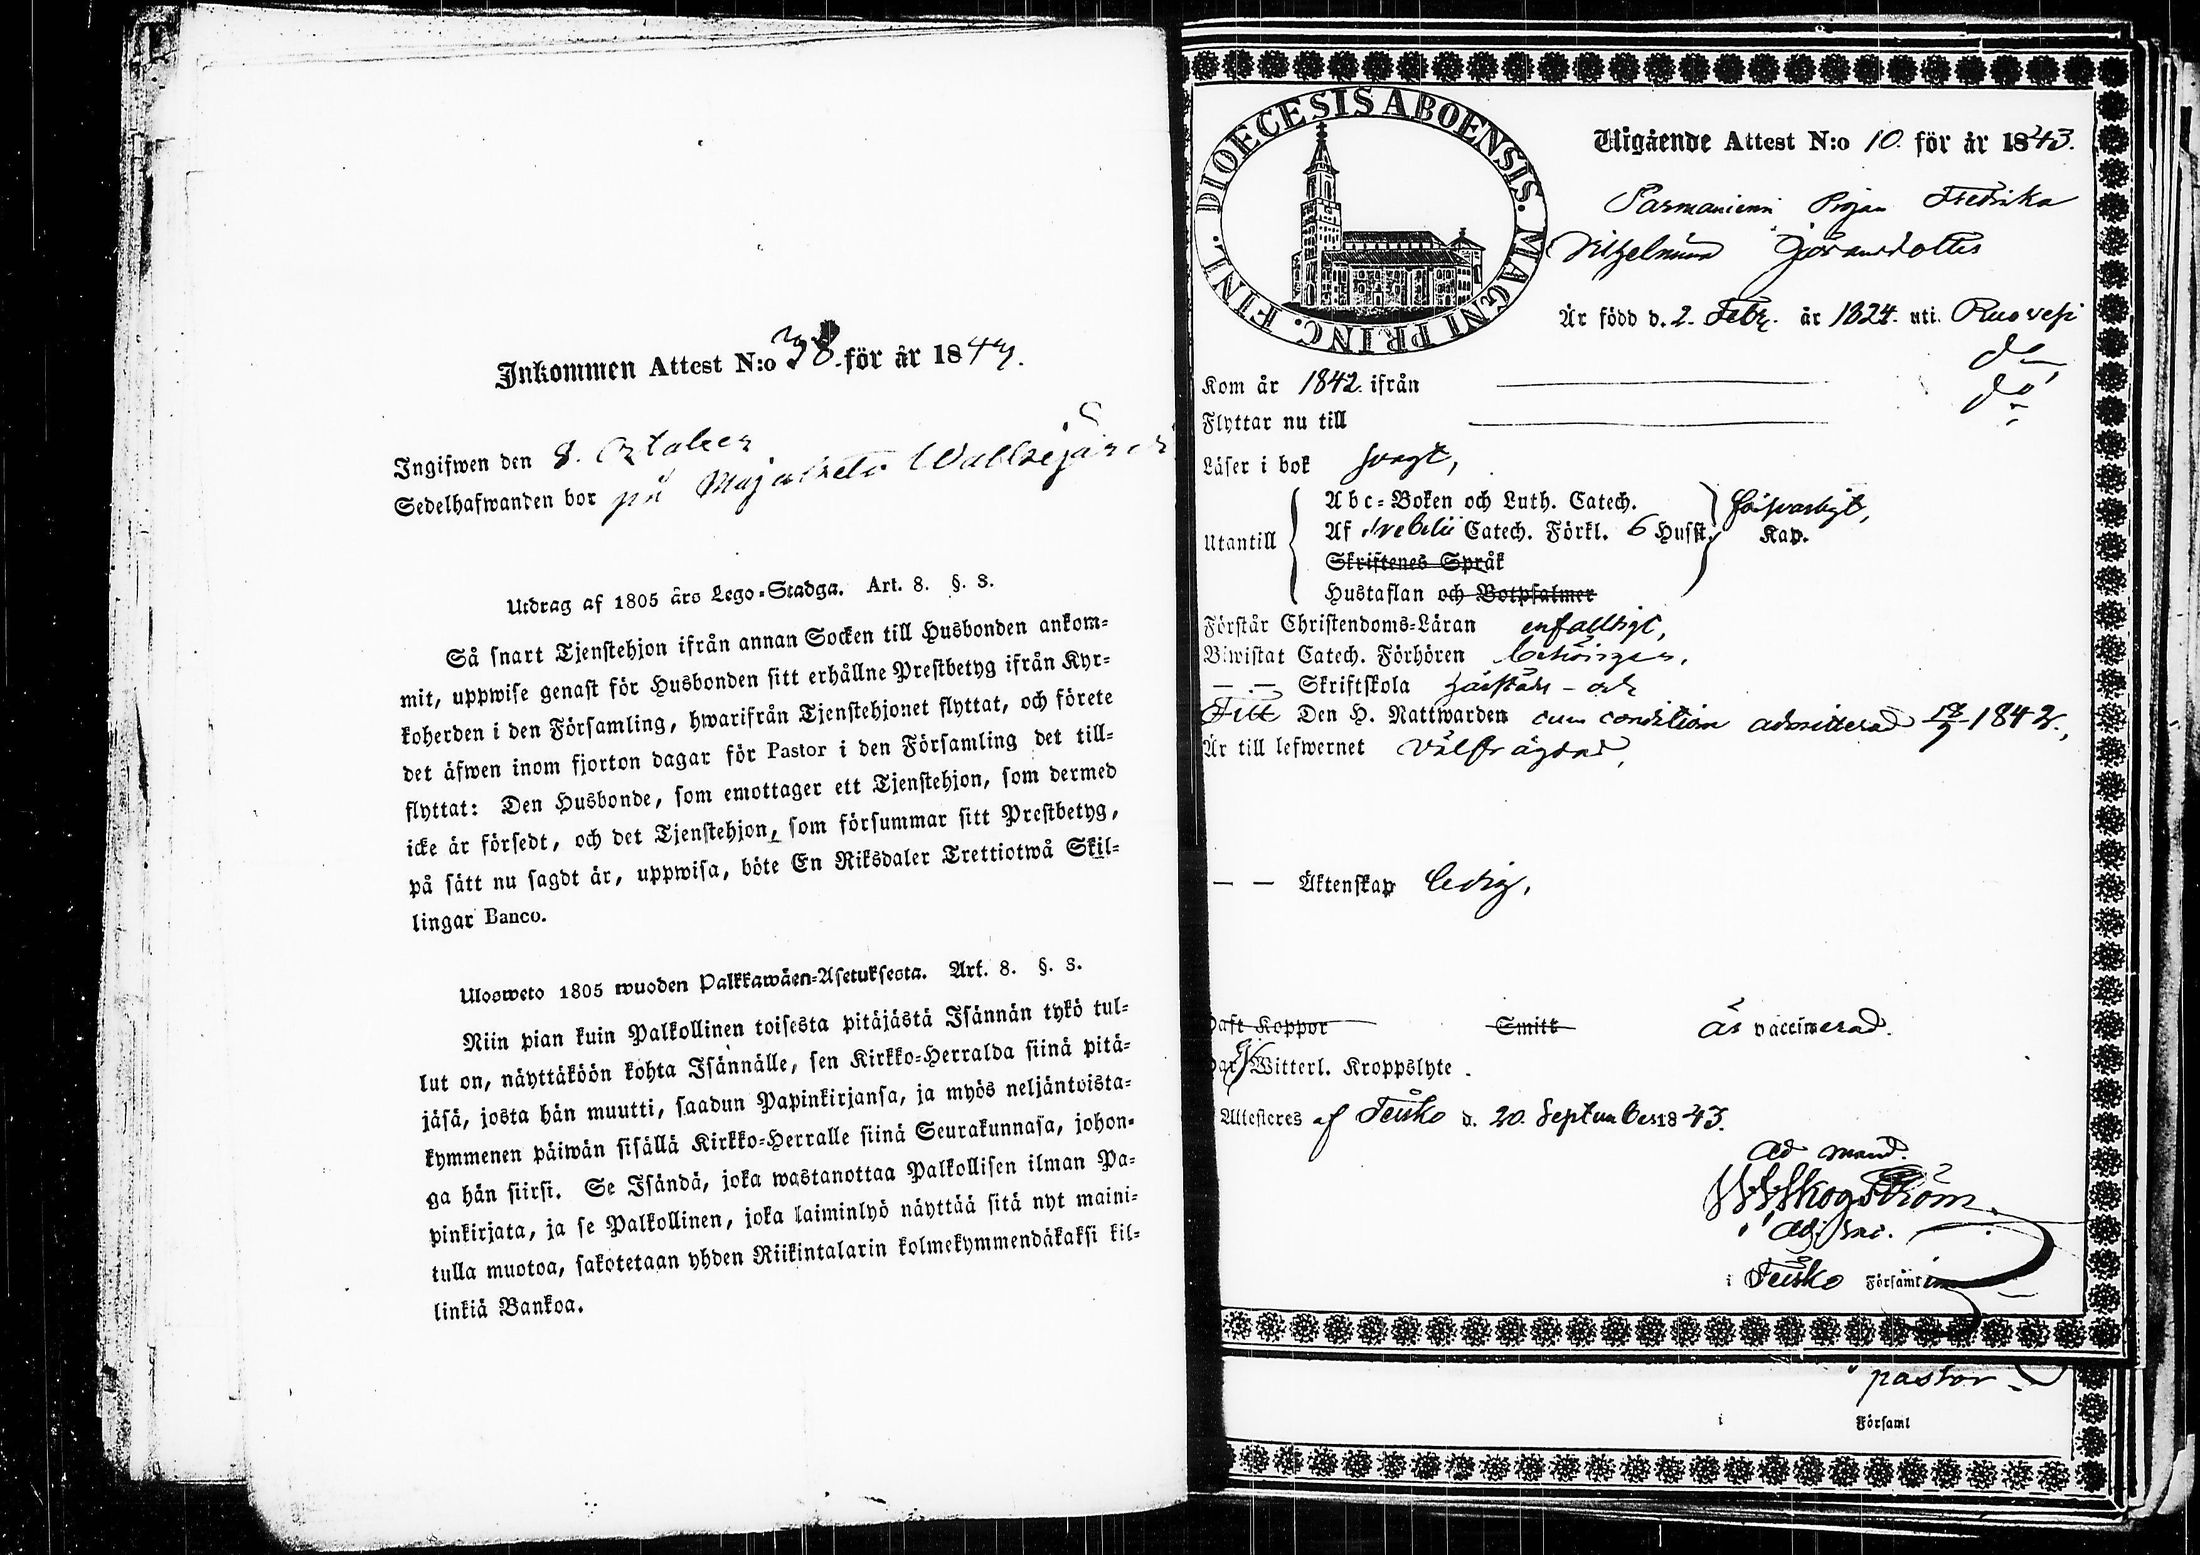 Inkommen Attest N:o 38. för år 1843.
Ingifwen den 8. October
Sedelhafwanden bor på
Utdrag af 1805 års Lego-Stadga. Art. 8. §. 8.
Så snart Tjenstehjon ifrån annan Socken till Husbonden ankom-
mit, uppwise genast för Husbonden sitt erhållne Prestbetyg ifrån Kyr-
koherden i den Församling, hwarifrån Tjenstehjonet flyttat, och förete
det äfwen inom fjorton dagar för Pastor i den Församling det till-
flyttat: Den Husbonde, som emottager ett Tjenstehjon, som dermed
icke är försedt, och det Tjenstehjon, som försummar sitt Prestbetyg,
på sätt nu sagdt är, uppwisa, böte En Riksdaler Trettiotwå Skil-
lingar Banco.
Ulosweto 1805 wuoden Palkkawäen-Asetuksesta. Art. 8. §. 8.
Niin pian kuin Palkollinen toisesta pitäjästä Isännän tykö tul-
lut on, näyttäköön kohta Isännälle, sen Kirkko-Herralda siinä pitä-
jäsä, josta hän muutti, saadun Papinkirjansa, ja myös neljäntoista-
kymmenen päiwän sisällä Kirkko-Herralle siinä Seurakunnasa, johon-
ga hän siirsi. Se Isändä, joka wastanottaa Palkollisen ilman Pa-
pinkirjata, ja se Palkollinen, joka laiminlyö näyttää sitä nyt maini-
tulla muotoa, sakotetaan yhden Riikintalarin kolmekymmendäkaksi kil-
linkiä Bankoa.
DIOECESIS ABOENSIS. MAGNI PRINC. FINL.
Utgående Attest N:o 10. för år 1843.
Pigan Fredrika
Vilhelmina Göransdotter
Är född d. 2. Febr. år 1824. uti. Ruovesi
Kom år 1842. ifrån do
Flyttar nu till do
Läser i bok svagt,
Utantill
Abc-Boken och Luth. Catech.
Af Svebilii Catech. Förkl. 6 Husst. Kap. försvarligt,
Skriftenes Språk
Hustaflan och Botpsalmer
Förstår Christendoms-Läran enfalligt,
Biwistat Catech. Förhören behörigen,
— — Skriftskola och
Till Den H. Nattwarden cum condition admitterad 1842.,
Är till lefwernet välfrägdad,
— — Äktenskap ledig,
Haft Koppor Smitt är vaccinerad.
Har Witterl. Kroppslyte.
Attesteres af Teisko d. 20. September 1843.
Ad mand.
Skogström
Adj.
i Teisko Församling
pastor
i Församl